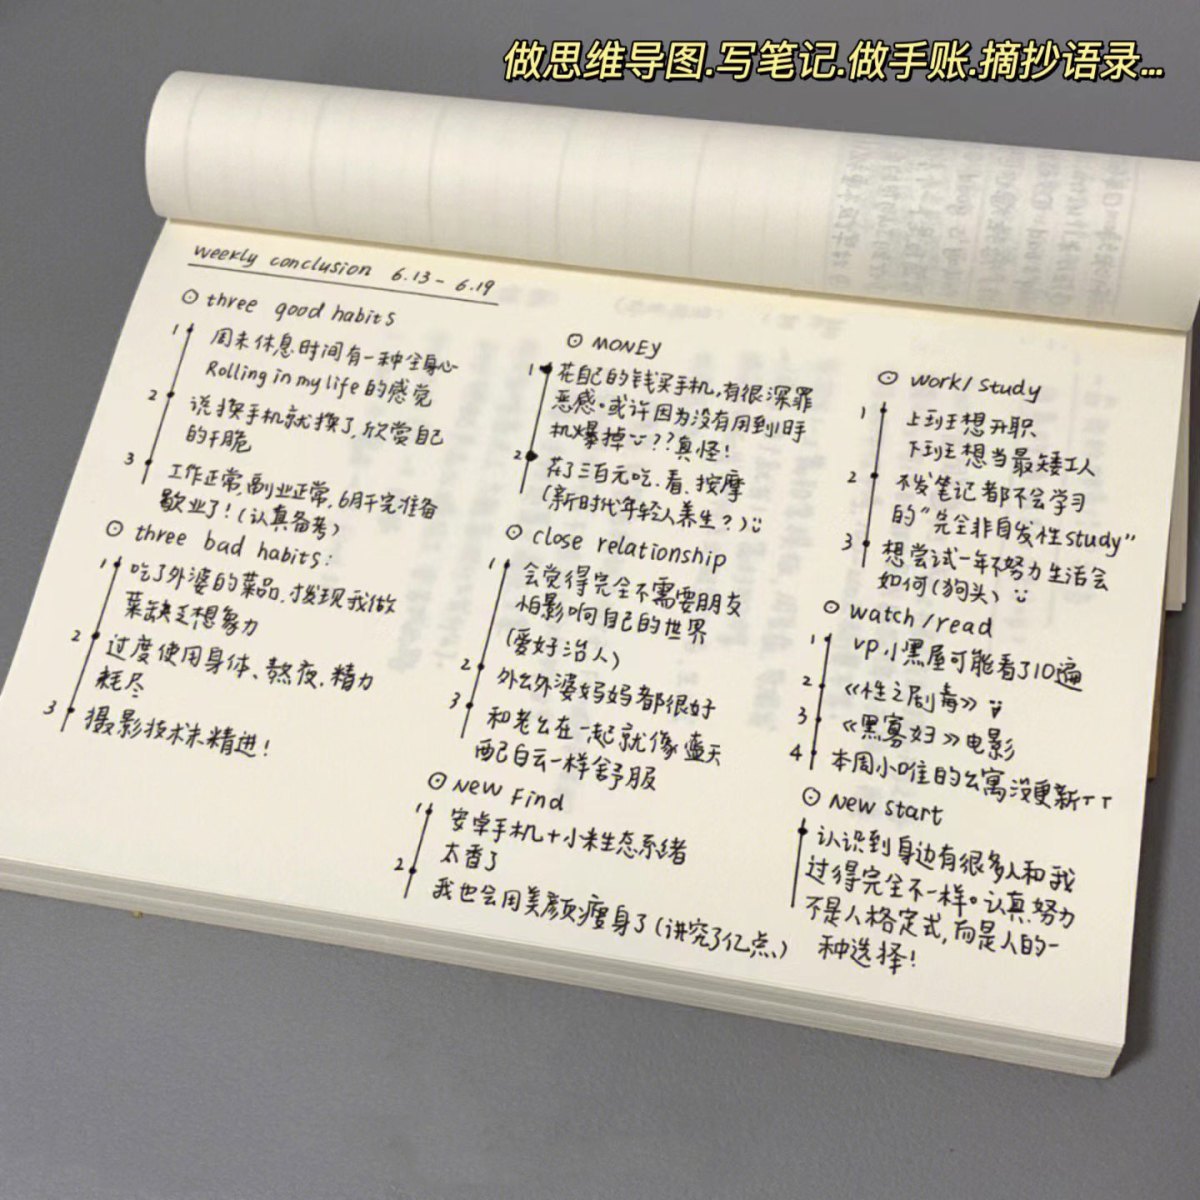 做思维导图.写笔记.做手账.摘抄语录...
weekly conclusion 6.13 - 6.19
three good habits
1 周末休息时间有一种全身心
Rolling in my life 的感觉
2 说换手机就换了,欣赏自己
的干脆
3 工作正常,副业正常,6月干完准备
歇业了!(认真备考)
three bad habits:
1 吃了外婆的菜品,发现我做
菜缺乏想象力
2 过度使用身体、熬夜,精力
耗尽
3 摄影技术未精进!
MONEY
1 花自己的钱买手机,有很深罪
恶感。或许因为没有用到旧手
机爆掉??真怪!
2 花了三百元吃、看、按摩
(新时代年轻人养生?)
close relationship
1 会觉得完全不需要朋友
怕影响自己的世界
(爱好治人)
2 外公外婆妈妈都很好
3 和老公在一起就像蓝天
配白云一样舒服
New Find
1 安卓手机+小米生态系统
太香了
2 我也会用美颜瘦身了(讲究了亿点)
work/study
1 上到班想升职
下到班想当最矮工人
2 不发笔记者都不会学习
的“完全非自发性study”
3 想尝试一年不努力生活会
如何(狗头)
watch/read
1 vp小黑屋可能看了10遍
2 《性之剧毒》
3 《黑寡妇》电影
4 本周小唯的公寓没更新TT
New start
认识到身边有很多人和我
过得完全不一样。认真努力
不是人格定式,而是人的一
种选择!